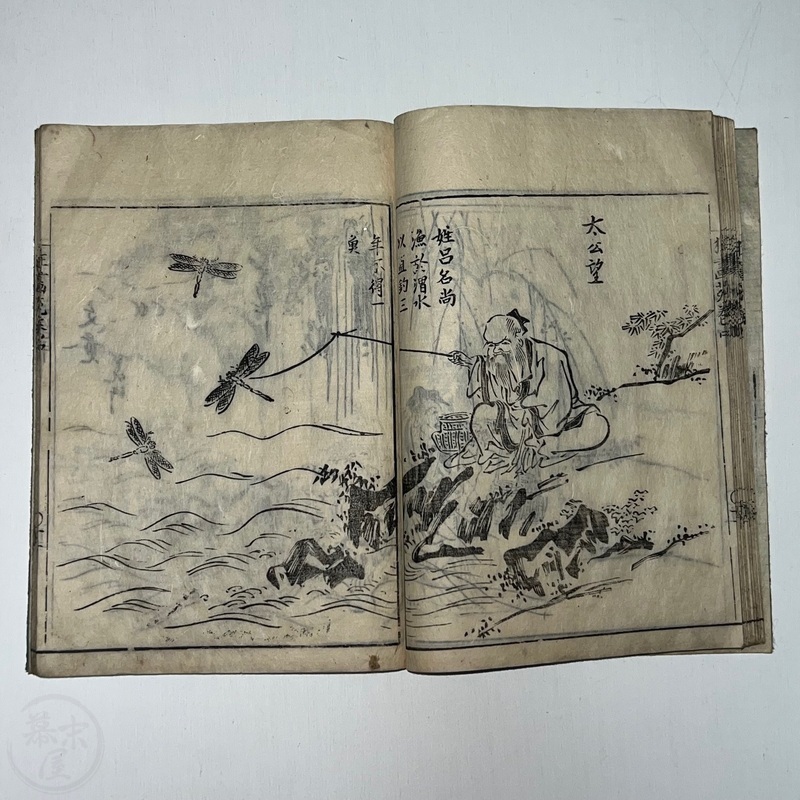 太公望
姓呂名尚
漁於渭水
以直鈎三
年不得一
魚
幕末屋